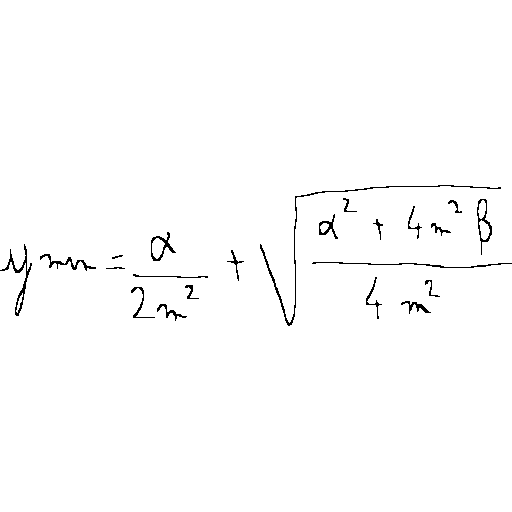 y_{mn} = \frac{\alpha}{2m^2} + \sqrt{\frac{\alpha^2 + 4m^2 \beta}{4m^2}}